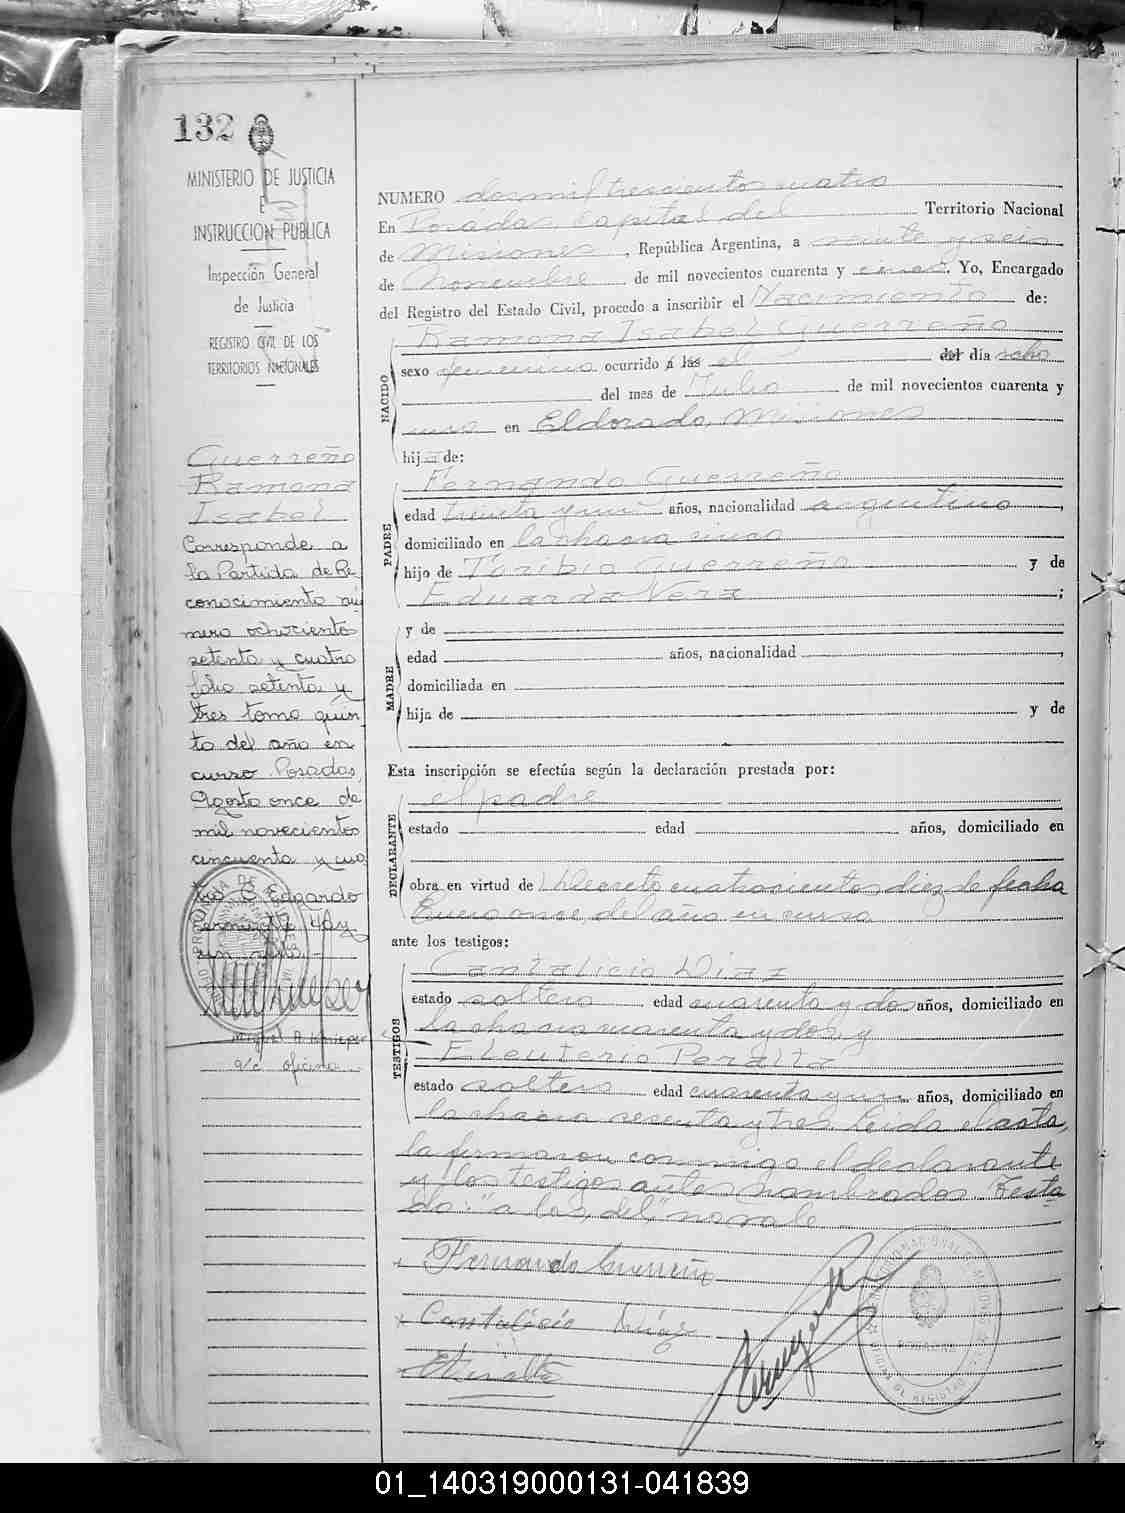 132
MINISTERIO DE JUSTICIA
E
INSTRUCCION PUBLICA
Inspección General
de Justicia
REGISTRO CIVIL DE LOS
TERRITORIOS NACIONALES
Guerreño
Ramona
Isabel
Corresponde a
la Partida de Re
conocimiento nú
mero ochociento
setenta y cuatro
folio setenta y
tres tomo quin
to del año en
curso. Posadas,
Agosto once de
mil novecientos
cincuenta y cua
tro. C. Edgardo
Miguel A.
a/c oficina
NUMERO dos mil trescientos cuatro
En Posadas, Capital del Territorio Nacional
de Misiones, República Argentina, a veinte y seis
de Noviembre de mil novecientos cuarenta y cinco. Yo, Encargado
del Registro del Estado Civil, procedo a inscribir el Nacimiento de:
NACIDO
Ramona Isabel Guerreño
sexo femenino ocurrido a las el del día ocho
del mes de Julio de mil novecientos cuarenta y
uno en Eldorado, Misiones
hija de:
PADRE
Fernando Guerreño
edad treinta y un años, nacionalidad argentino,
domiciliado en la chacra cinco
hijo de Toribio Guerreño y de
Eduarda Vera;
MADRE
y de
edad años, nacionalidad ,
domiciliada en
hija de y de
Esta inscripción se efectúa según la declaración prestada por:
DECLARANTE
el padre
estado edad años, domiciliado en
obra en virtud de l Decreto cuatrocientos diez de fecha
Enero once, del año en curso
ante los testigos:
TESTIGOS
Cantalicio Diaz
estado soltero edad cuarenta y dos años, domiciliado en
la chacra cuarenta y dos, y
Eleuterio Peralta
estado soltero edad cuarenta y un años, domiciliado en
la chacra sesenta y tres. Leida el acta,
la firmaron conmigo el declarante
y los testigos antes nombrados. Testa
do: "a las, del," no vale
Fernando Guerreño
Cantalicio Diaz
01_140319000131-041839